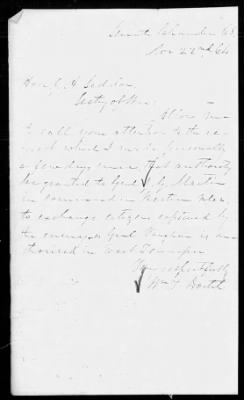 Senate Chamber C.S.
Nov 22nd, 64
Hon. J. A. Seddon,
Secty of War:
Allow me
to call your attention to the re-
quest which I made personally
a few days since, that authority
be granted to Genl
in command in Western
to exchange citizens captured by
the enemy as Genl Vaughn is au-
thorised in East Tennessee
Yours respectfully
Wm